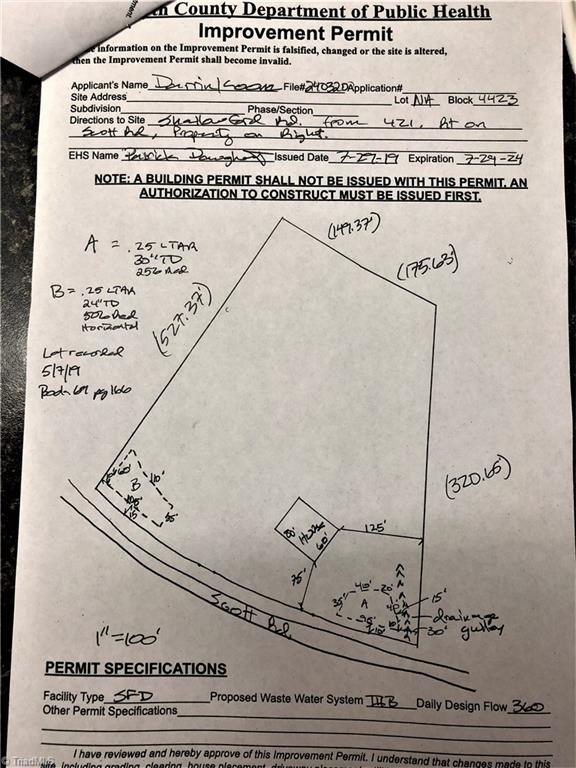 County Department of Public Health
Improvement Permit
information on the Improvement Permit is falsified, changed or the site is altered,
then the Improvement Permit shall become invalid.
Applicant's Name File# Application#
Site Address Lot NA Block 4423
Subdivision Phase/Section
Directions to Site Rd. from 421, Rt on
Scott Rd, Property on Right.
EHS Name Issued Date 7-29-19 Expiration 7-29-24
NOTE: A BUILDING PERMIT SHALL NOT BE ISSUED WITH THIS PERMIT. AN
AUTHORIZATION TO CONSTRUCT MUST BE ISSUED FIRST.
(149.37')
(175.63')
A = .25 LTAR
30" TD
25% Red
(527.37')
B = .25 LTAR
24" TD
50% Red
Horizontal
Lot recorded
5/7/19
Book 69 pg 166
(320.65')
B
110'
House
60'
125'
75'
35'
40'
20'
A
15'
drainage
gulley
30'
Scott Rd
1"=100'
PERMIT SPECIFICATIONS
Facility Type SFD Proposed Waste Water System IIIB Daily Design Flow 360
Other Permit Specifications
I have reviewed and hereby approve of this Improvement Permit. I understand that changes made to this
site, including grading, clearing, house placement, driveway
© TriadMLS